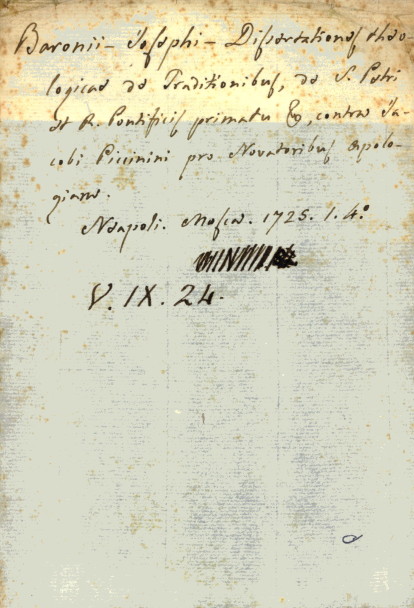 Baronii - Josephi - Dissertationes theo-
logicae de Traditionibus, de S. Petri
et R. Pontificis primatu &c, contra Ja-
cobi Piccinini pro Novatoribus apolo-
giam.
Neapoli. Mosca. 1725. 1. 4.º
V. IX. 24.